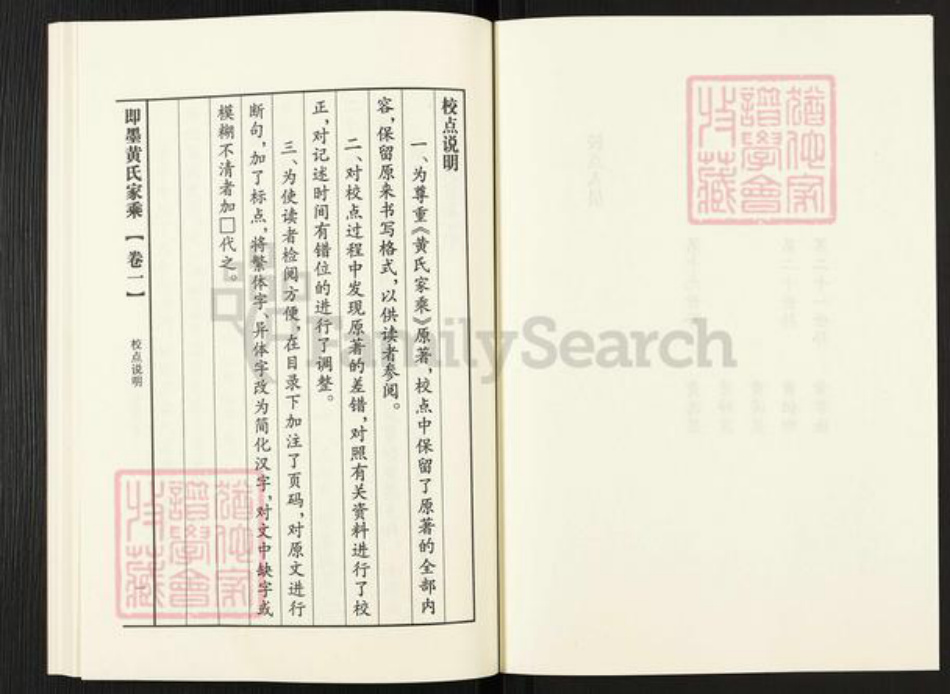 校点说明
一、为尊重《黄氏家乘》原著，校点中保留了原著的全部内
容，保留原来书写格式，以供读者参阅。
二、对校点过程中发现原著的差错，对照有关资料进行了校
正，对记述时间有错位的进行了调整。
三、为使读者检阅方便，在目录下加注了页码，对原文进行
断句，加了标点，将繁体字、异体字改为简化汉字，对文中缺字或
模糊不清者加□代之。
即墨黄氏家乘【卷一】
校点说明
FamilySearch